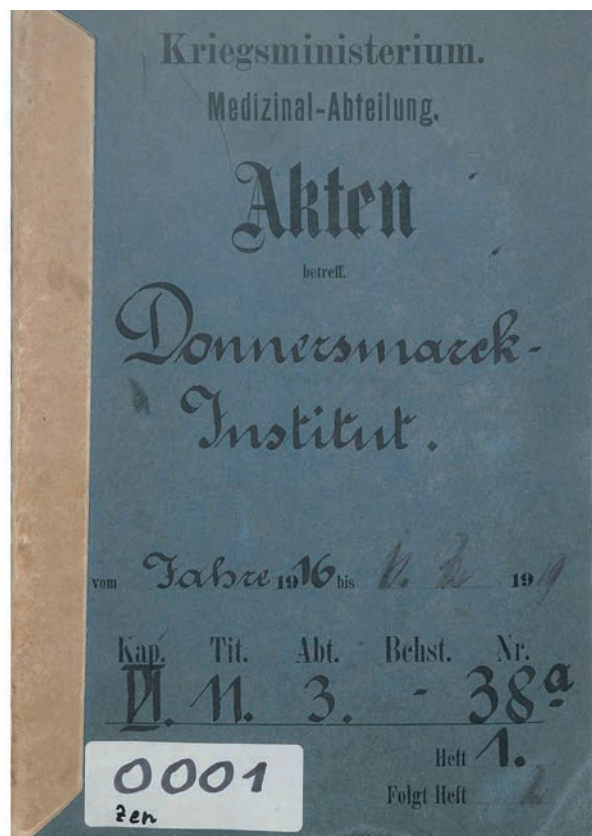 Kriegsministerium.
Medizinal-Abteilung.
Akten
betreff.
Donnersmarck-
Institut.
vom Jahre 1916 bis 1919
Kap. Tit. Abt. Bchst. Nr.
VI. 11. 3. - 38a
Heft 1.
Folgt Heft 2
0001
Zen